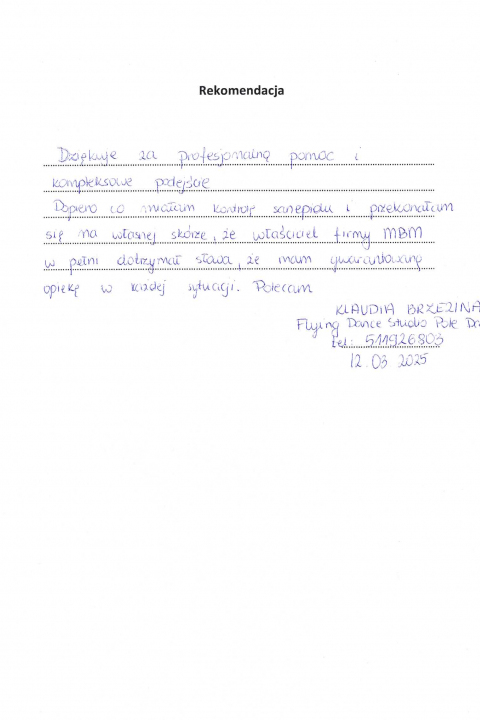 Rekomendacja
Dziękuje za profesjonalną pomoc i
kompleksowe podejście
Dopiero co miałam kontrolę sanepidu i przekonałam
się na własnej skórze, że właściciel firmy MBM
w pełni dotrzymał słowa, że mam gwarantowaną
opiekę w każdej sytuacji. Polecam
KLAUDIA BRZEZINA
Flying Dance Studio Pole
tel: 511926803
12.03 2025